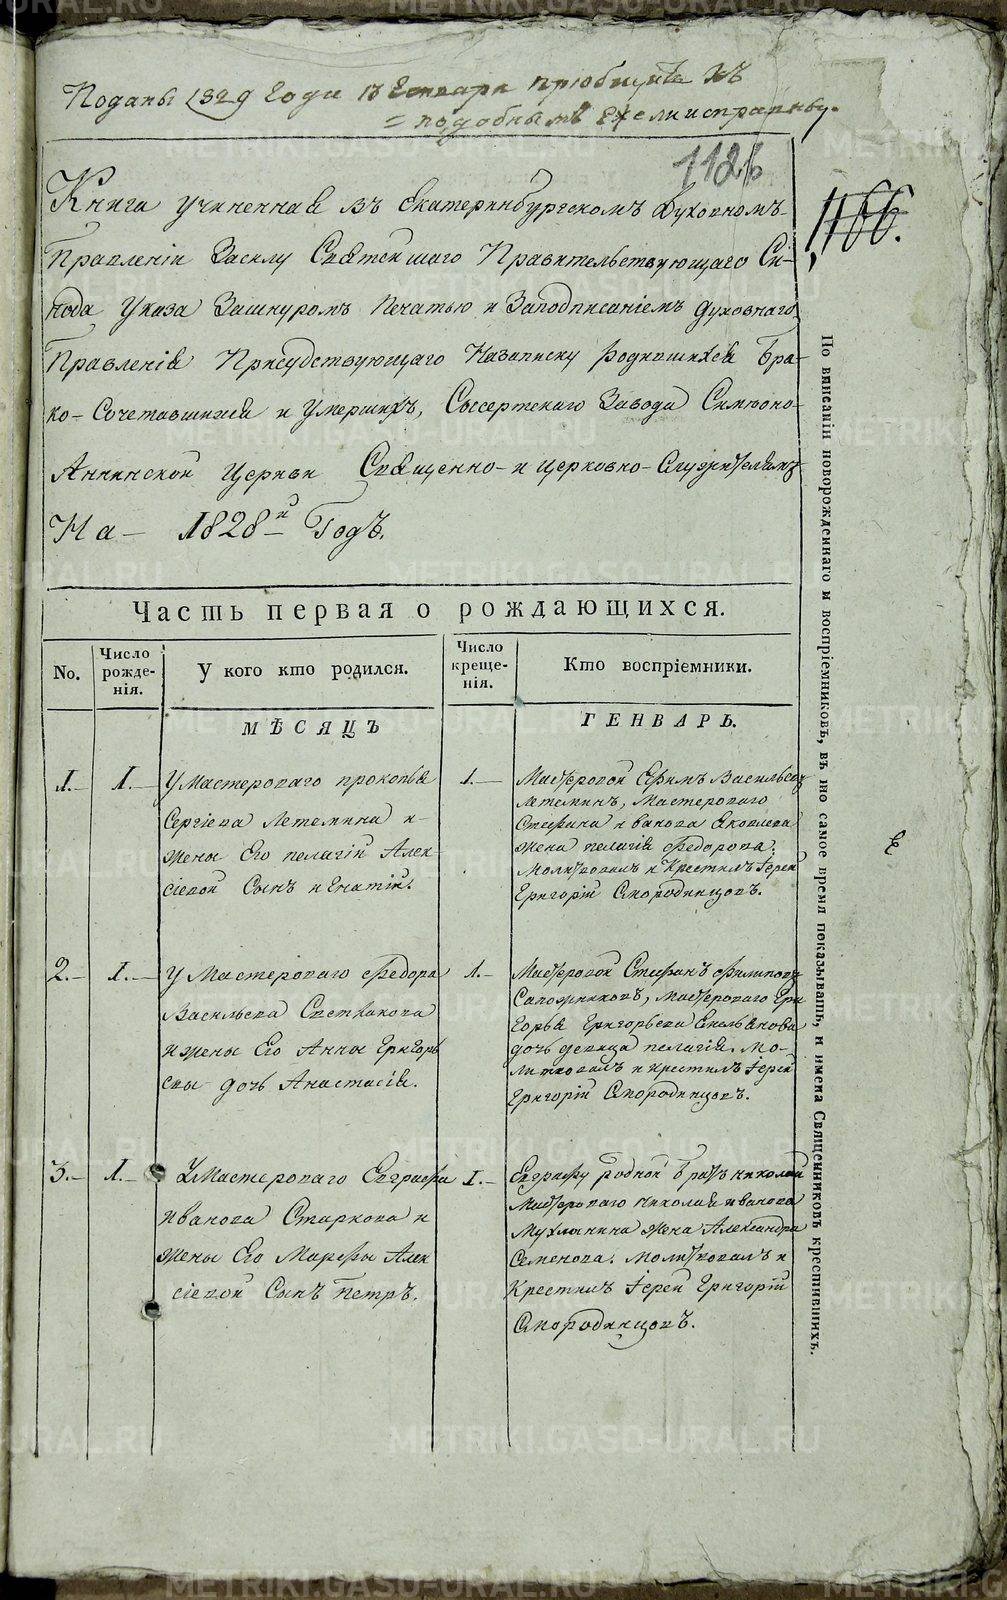 Поданы 1829 Года 13 Генваря приобщить къ
= подобнымъ ежели исправны.
1126
1166.
Книга учиненная въ Екатеринбургскомъ Духовномъ
Правленіи Всилу Святейшаго Правительствующаго Си-
нода Указа Зашнуромъ Печатью и Заподписаніемъ духовнаго
Правленія Присудствующаго Назаписку родившихся бра-
ко-Сочетавшихся и умершихъ, Сысертскаго Завода Симеоно-
Аннинской Церкви Священно- и церковно-Служителямъ
На- 1828й Годъ.
Часть первая о рождающихся.
No. Число рожде-нія. У кого кто родился. Число креще-нія. Кто воспріемники.
МѢСЯЦЪ ГЕНВАРЬ.
1.- 1.- У Мастероваго прокопья
Сергіева Летемина и
жены Его пелагіи Алек-
сіевой Сынъ игнатій.
1.- Мастеровой Ефимъ Васильевъ
Летеминъ, Мастероваго
Стефана иванова Яковлева
жена пелагія федорова.
Молитвовалъ и Крестилъ Іерей
Григорій Смородинцовъ.
2.- 1.- У Мастероваго федора
Васильева Светлакова
и жены Его Анны Григорь
евы дочь Анастасія.
1.- Мастеровой Стефанъ филиповъ
Сапожниковъ, Мастероваго Гри
горья Григорьева Емельянова
дочь девица пелагія. Мо-
литвовалъ и крестилъ Іерей
Григорій Смородинцовъ.
3.- 1.- У Мастероваго Евграфа
Иванова Старкова и
жены Его Марфы Алек
сіевой Сынъ Петръ.
1.- Евграфу родной братъ николай
Мастероваго николая иванова
Мухлынина жена Александра
Семенова. Молитвовалъ и
Крестилъ Іерей Григорій
Смородинцовъ.
По вписаніи новорожденнаго и воспріемниковъ, въ то самое время показывать, и имена Священниковъ крестившихъ.
METRIKI.GASO-URAL.RU